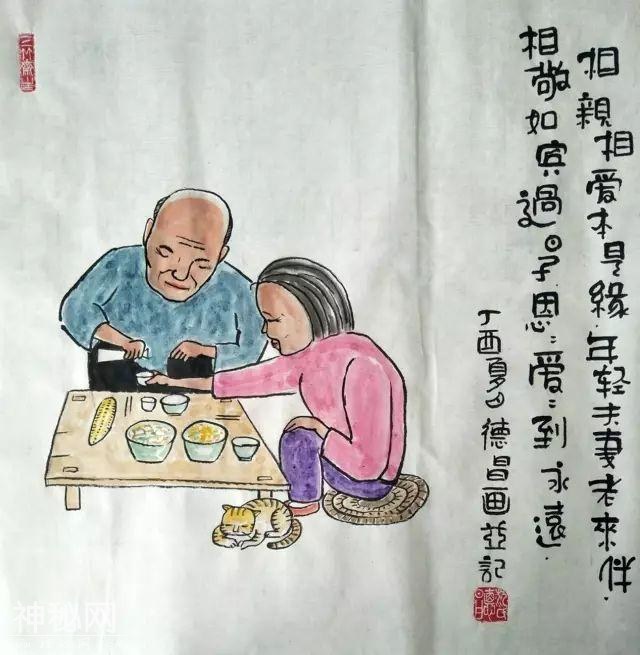 相親相爱本是緣年轻夫妻老來伴
相敬如宾過日子恩:爱:到永遠
丁酉夏山德昌画並記
神秘网